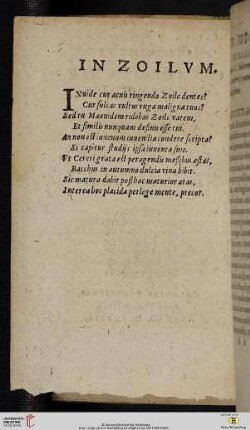 IN ZOILVM.
INuide cur acuis ringendo Zoile dentes?
Cur sulcat vultus ruga maligna tuos?
Sed tu Maeonidem rodebas Zoile vatem,
Et similis nunquam desinis esse tui.
An non est iuuenum iuuenilia condere scripta?
Si capitur studijs ipsa iuuenta suis.
Vt Cereri grata est peragendis messibus aestas,
Bacchus in autumno dulcia vina bibit.
Sic matura dabit posthac maturior aetas,
Interea hoc placida perlege mente, precor.
UNIVERSITÄTS-
BIBLIOTHEK
HEIDELBERG
© Universitätsbibliothek Heidelberg